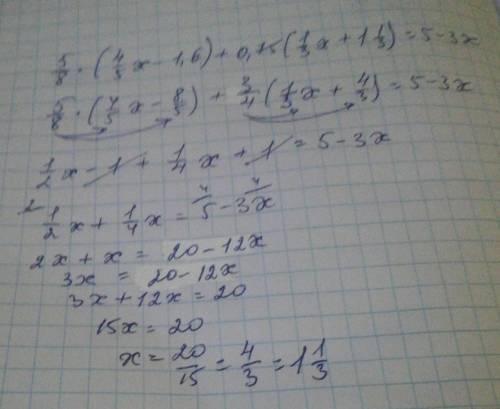 5/8 · (4/5x - 1,6) + 0,75(1/3x + 1 1/3) = 5 - 3x
5/8 · (4/5x - 8/5) + 3/4(1/3x + 4/3) = 5 - 3x
1/2x - 1 + 1/4x + 1 = 5 - 3x
2 1/2x + 1/4x = 4 5 - 4 3x
2x + x = 20 - 12x
3x = 20 - 12x
3x + 12x = 20
15x = 20
x = 20/15 = 4/3 = 1 1/3